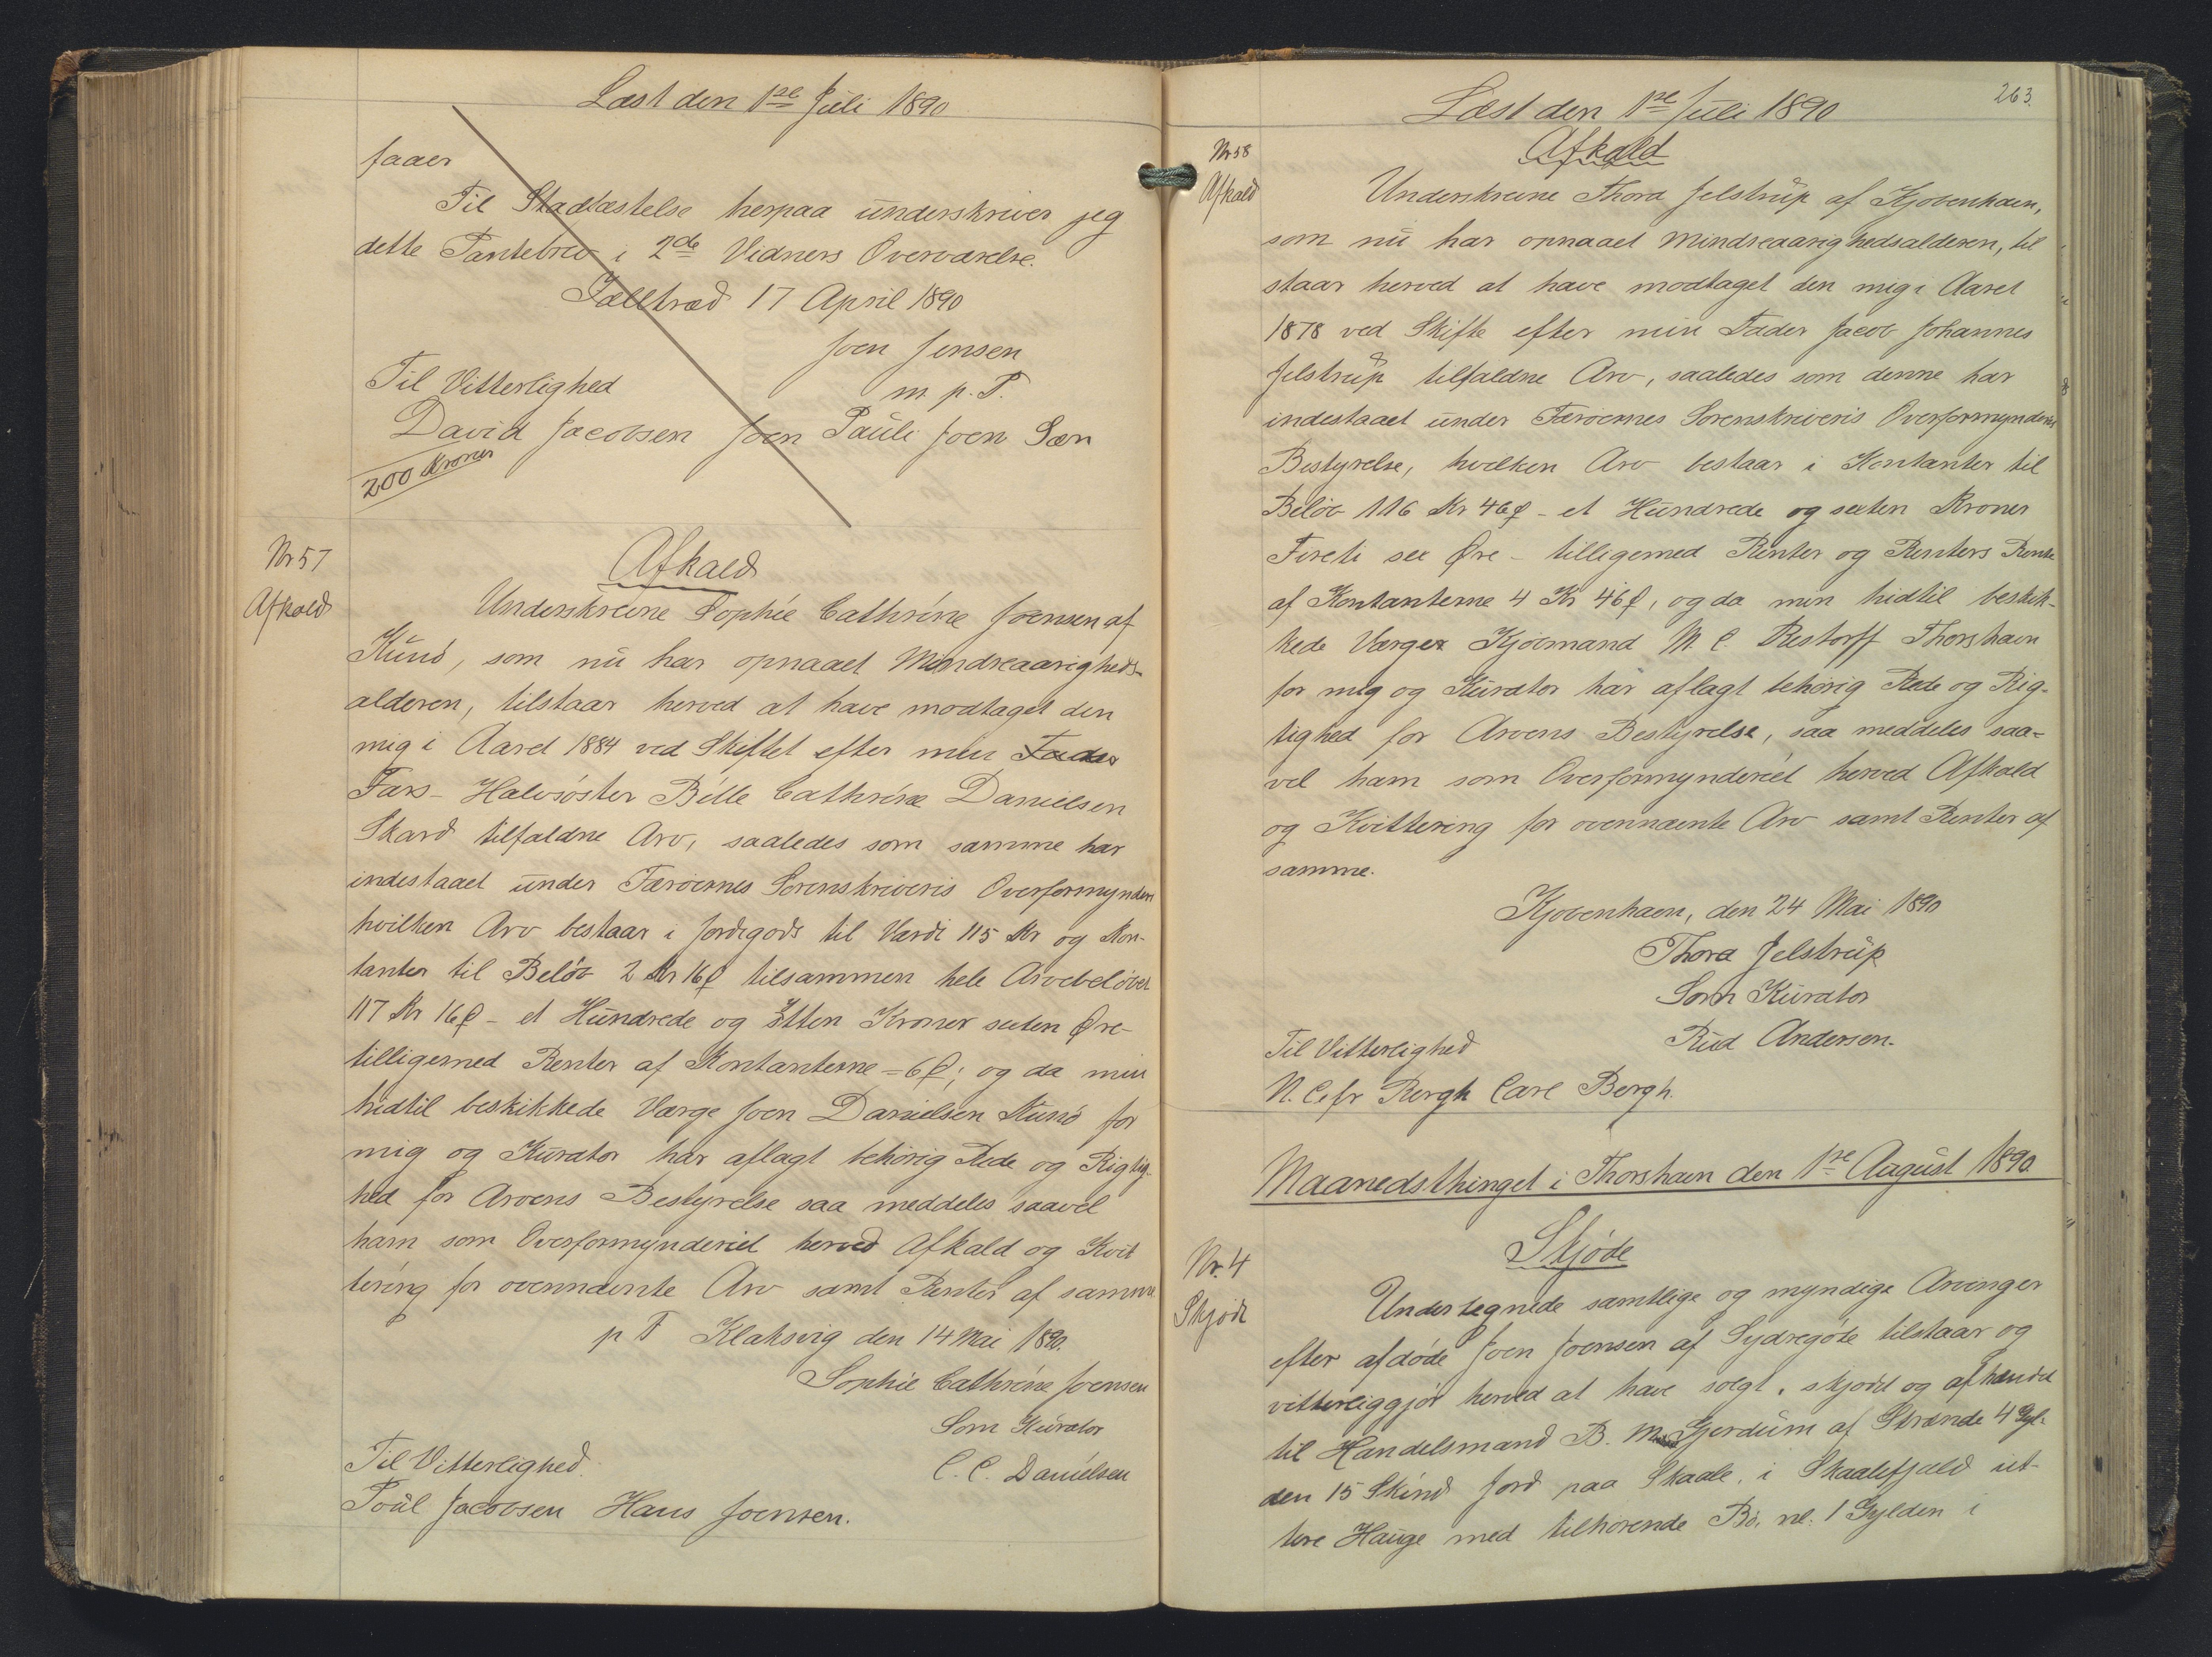 Læst den 1ste Juli 1890
faaer
Til Stadfæstelse herpaa underskriver jeg
dette Pantebrev i 2de Vidners Overværelse.
Tælltræd 17 April 1890
Joen Jensen
Til Vitterlighed m. p. P.
David Jacobsen Joen Pauli Joen Søn
200 Kroner
Nr 57
Afkald
Afkald
Underskrevne Sophie Cathrine Joensen af
Kunø, som nu har opnaaet Mindreaarigheds-
alderen, tilstaar herved at have modtaget den
mig i Aaret 1884 ved Skiftet efter min Fader
Fars- Halvsøster Bille Cathrine Danielsen
Skard tilfaldne Arv, saaledes som samme har
indestaaet under Færøernes Sorenskriveris Overformynderi
hvilken Arv bestaar i Jordegods til Værdi 115 Kr og Kon-
tanter til Beløb 2 Kr 16 Ø tilsammen hele Arvebeløbet
117 Kr 16 Ø - et Hundrede og sytten Kroner sexten Øre-
tilligemed Renter af Kontanterne = 6 Ø; og da min
hidtil beskikkede Værge Joen Danielsen Kunø for
mig og Kurator har aflagt behørig Rede og Rigtig-
hed for Arvens Bestyrelse saa meddeles saavel
ham som Overformynderiet herved Afkald og Kvit
tering for ovennævnte Arv samt Renter af samme
p T Klaksvig den 14 Mai 1890.
Sophie Cathrine Joensen
Som Kurator
Til Vitterlighed. C. C. Danielsen
Poül Jacobsen Hans Joensen.
263.
Læst den 1ste Juli 1890
Nr 58
Afkald
Afkald
Underskrevne Thora Jelstrup af Kjøbenhavn,
som nu har opnaaet Mindreaarighedsalderen, til
staar herved at have modtaget den mig i Aaret
1878 ved Skifte efter min Fader Jacob Johannes
Jelstrup tilfaldne Arv, saaledes som denne har
indestaaet under Færøernes Sorenskriveris Overformynderis
Bestyrelse, hvilken Arv bestaar i Kontanter til
Beløb 116 Kr 46 Ø - et Hundrede og sexten Kroner
Fireti sex Øre - tilligemed Renter og Renters Rente
af Kontanterne 4 Kr 46 Ø, og da min hidtil beskik-
kede Værger Kjøbmand M. C. Restorff Thorshavn
for mig og Kurator har aflagt behørig Rede og Rig-
tighed for Arvens Bestyrelse, saa meddeles saa-
vel ham som Overformynderiet herved Afkald
og Kvittering for ovennævnte Arv samt Renter af
samme.
Kjøbenhavn, den 24 Mai 1890
Thora Jelstrup
Som Kurator
Til Vitterlighed Rud Andersen.
N. Bergh Carl Bergh.
Maanedsthinget i Thorshavn den 1ste August 1890
Nr. 4
Skjøde
Skjøde
Undertegnede samtlige og myndige Arvinger
efter afdøde Joen Joensen af Sydregøte tilstaar og
vitterliggjør herved at have solgt, skjødet og afhændet
til Handelsmand B. M. Gjerdum af Strænde 4 Gyl-
den 15 Skind Jord paa Skaale, i Skaalefjeld ut-
tere Hauge med tilhørende Bø, nl. 1 Gylden i